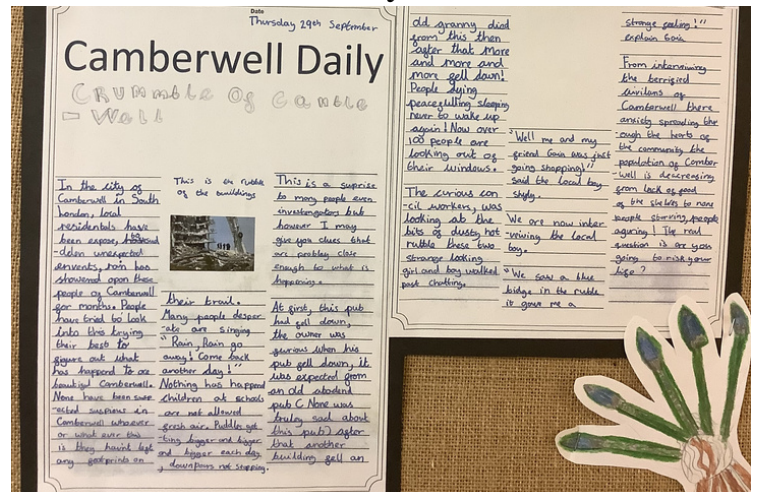 Date
Thursday 29th September
Camberwell Daily
Crumble Of Camble
- Well
In the city of
Camberwell in South
London, local
residentals have
been expose, to
-den unexpected
envents, rain has
showered upon these
people of Camberwell
for months. People
have tried to look
into this trying
their best to
figure out what
has happend to are
beautiful Camberwell.
None have been suspe
-acted suspious in
Camberwell whoever
or what ever this
is they havint left
any footprints on
This is the rubble
of the buildings
their trail.
Many people desper
-ate are singing
"Rain, Rain go
away! Come back
another day!"
Nothing has happend
children at schools
are not allowed
fresh air. Puddles get
-ting bigger and bigger
and bigger each day,
downpours not stopping.
This is a suprise
to many people even
investagators but
however I may
give you clues that
are probley close
enough to what is
happening.
At first, this pub
had fell down,
the owner was
furious when his
pub fell down, it
was expected from
an old abodend
pub ( None was
truley sad about
this pub) after
that another
building fell an
old granny died
from this then
after that more
and more and
more fell down!
People dying
peacefulling sleeping
never to wake up
again! Now over
100 people are
looking out of
their windows.
The curious con
-cil workers, was
looking at the
bits of dusty, hot
rubble these two
strange looking
girl and boy walked
past chatting.
"Well me and my
friend Gain was just
going shopping!"
said the local boy
shyly.
We are now inter
-vriving the local
boy.
"We saw a blue
bidge in the ruble
it gave me a
strange feeling!"
explain Gain
From interviening
the terrified
civilans of
Camberwell there
anxiety spreading thr
-ough the hearts of
the community the
population of Camber
-well is decreasing
from lack of food
of the shelves to none
people starving, people
aguring! The real
question is are you
going to risk your
life?